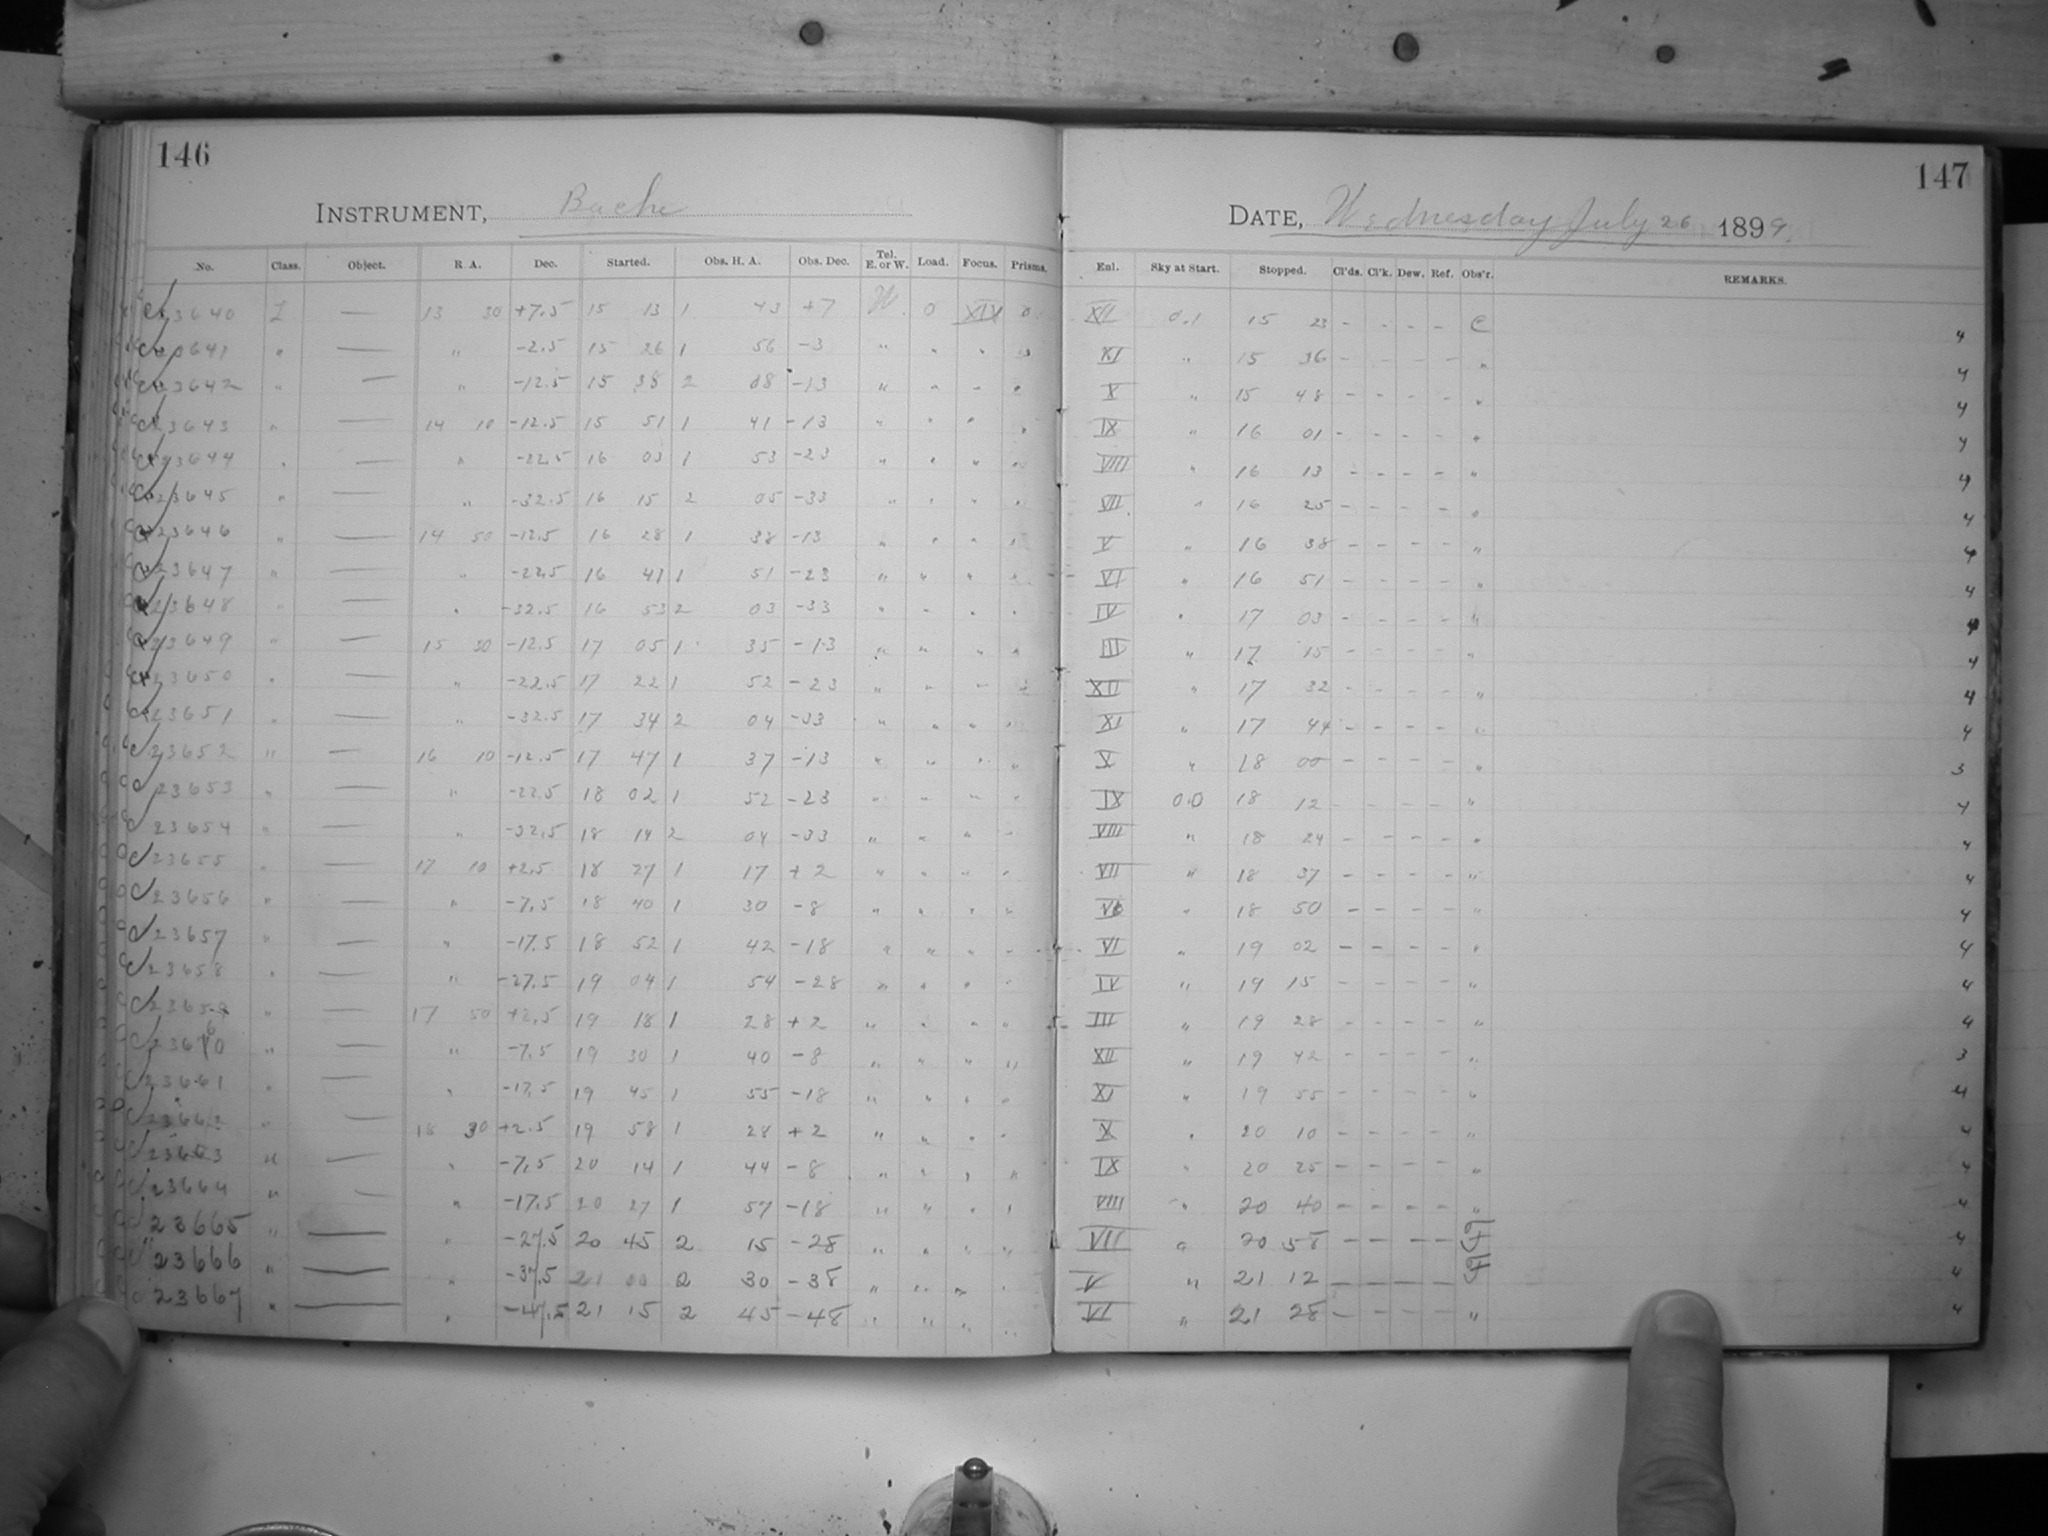 146
INSTRUMENT, Bache
No. Class. Object. R. A. Dec. Started. Obs. H. A. Obs. Dec. Tel. E. or W. Load. Focus. Prisms.
23640 I — 13 30 +7.5 15 13 1 43 +7 W. 0 XIV 0
23641 " — " -2.5 15 26 1 56 -3 " " " "
23642 " — " -12.5 15 38 2 08 -13 " " " "
23643 " — 14 10 -12.5 15 51 1 41 -13 " " " "
23644 " — " -22.5 16 03 1 53 -23 " " " "
23645 " — " -32.5 16 15 2 05 -33 " " " "
23646 " — 14 50 -12.5 16 28 1 38 -13 " " " "
23647 " — " -22.5 16 41 1 51 -23 " " " "
23648 " — " -32.5 16 53 2 03 -33 " " " "
23649 " — 15 30 -12.5 17 05 1 35 -13 " " " "
23650 " — " -22.5 17 22 1 52 -23 " " " "
23651 " — " -32.5 17 34 2 04 -33 " " " "
23652 " — 16 10 -12.5 17 47 1 37 -13 " " " "
23653 " — " -22.5 18 02 1 52 -23 " " " "
23654 " — " -32.5 18 14 2 04 -33 " " " "
23655 " — 17 10 +2.5 18 27 1 17 +2 " " " "
23656 " — " -7.5 18 40 1 30 -8 " " " "
23657 " — " -17.5 18 52 1 42 -18 " " " "
23658 " — " -27.5 19 04 1 54 -28 " " " "
23659 " — 17 50 +2.5 19 18 1 28 +2 " " " "
23660 " — " -7.5 19 30 1 40 -8 " " " "
23661 " — " -17.5 19 45 1 55 -18 " " " "
23662 " — 18 30 +2.5 19 58 1 28 +2 " " " "
23663 " — " -7.5 20 14 1 44 -8 " " " "
23664 " — " -17.5 20 27 1 57 -18 " " " "
23665 " — " -27.5 20 45 2 15 -28 " " " "
23666 " — " -37.5 21 00 2 30 -38 " " " "
23667 " — " -47.5 21 15 2 45 -48 " " " "
147
DATE, Wednesday July 26 1899.
Enl. Sky at Start. Stopped. Cl'ds. Cl'k. Dew. Ref. Obs'r. REMARKS.
XII 0.1 15 23 - - - - C 4
XI " 15 36 - - - - " 4
X " 15 48 - - - - " 4
IX " 16 01 - - - - " 4
VIII " 16 13 - - - - " 4
VII " 16 25 - - - - " 4
V " 16 38 - - - - " 4
VI " 16 51 - - - - " 4
IV " 17 03 - - - - " 4
III " 17 15 - - - - " 4
XII " 17 32 - - - - " 4
XI " 17 44 - - - - " 4
X " 18 00 - - - - " 3
IX 0.0 18 12 - - - - " 4
VIII " 18 24 - - - - " 4
VII " 18 37 - - - - " 4
" 18 50 - - - - " 4
VI " 19 02 - - - - " 4
IV " 19 15 - - - - " 4
III " 19 28 - - - - " 4
XII " 19 42 - - - - " 3
XI " 19 55 - - - - " 4
X " 20 10 - - - - " 4
IX " 20 25 - - - - " 4
VIII " 20 40 - - - - " 4
VII " 20 58 - - - - 4
V " 21 12 - - - - 4
VI " 21 28 - - - - " 4